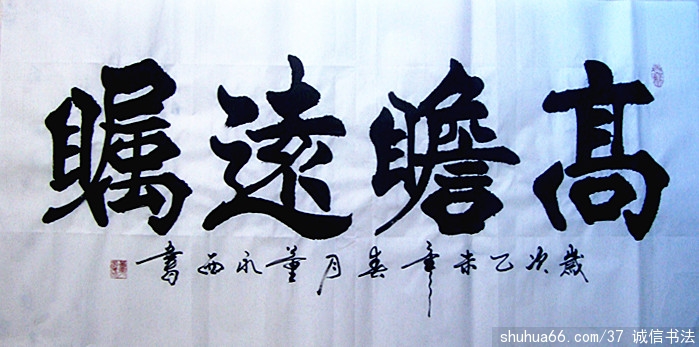 高瞻遠矚
歲次乙未年春月董永西書
shuhua66.com/37 诚信书法